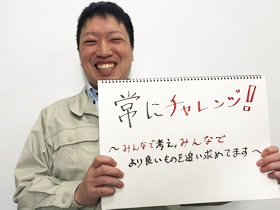 常にチャレンジ!!
～みんなで考え、みんなで
より良いものを追い求めてます～